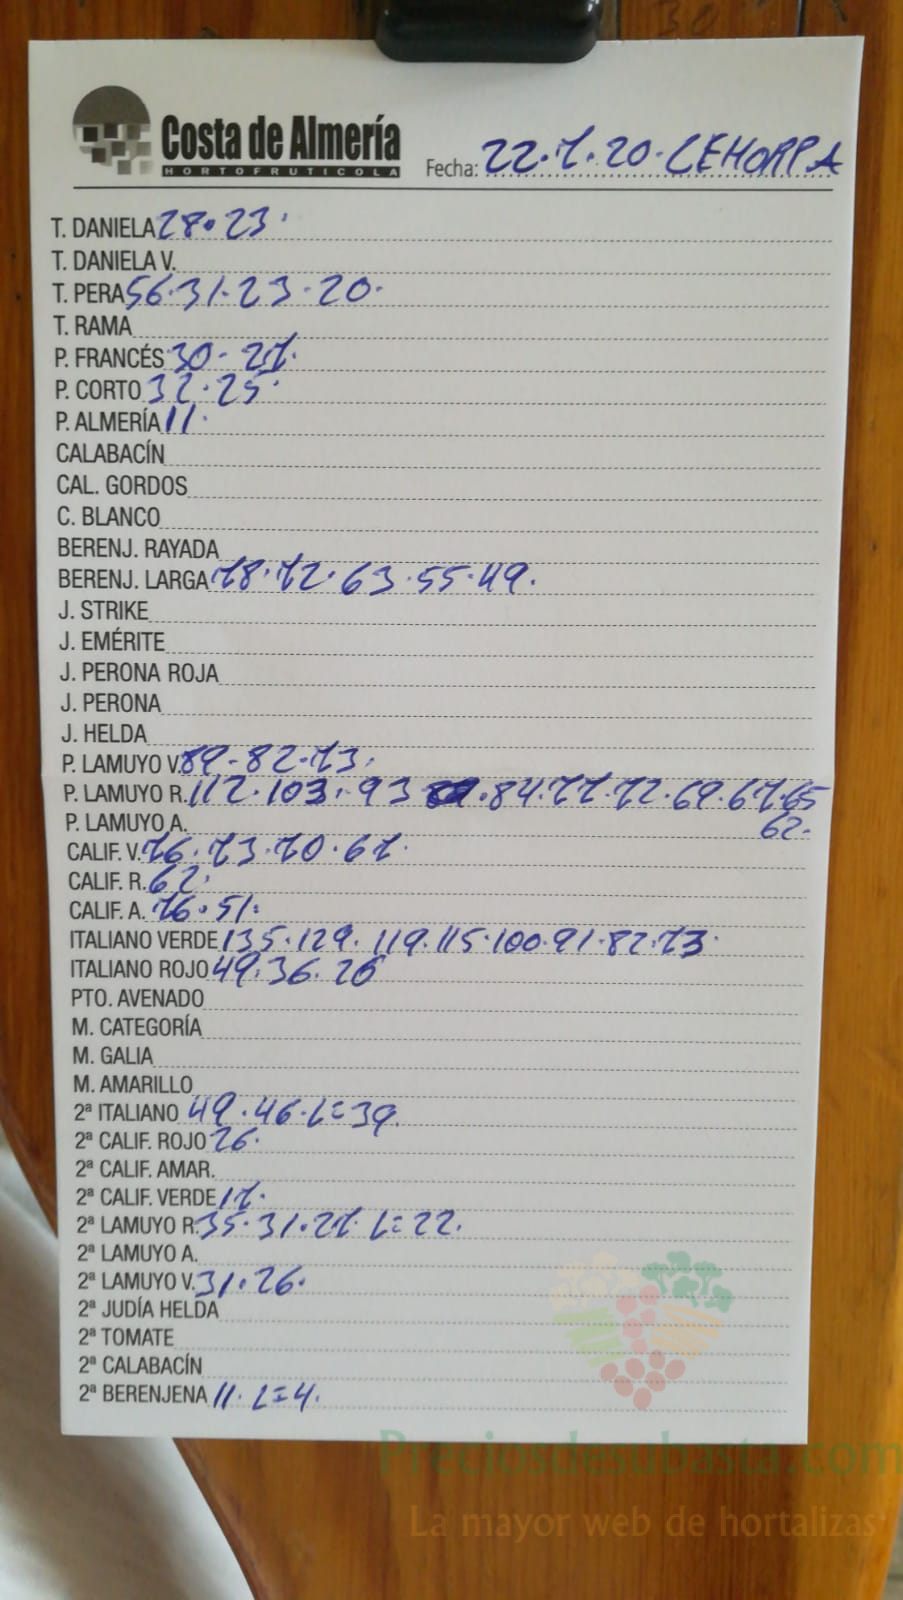 30
Costa de Almería
HORTOFRUTICOLA
Fecha: 22.7.20. CEHORPA
T. DANIELA 28.23.
T. DANIELA V.
T. PERA 56.31.23.20.
T. RAMA
P. FRANCÉS 30-27.
P. CORTO 32.25.
P. ALMERÍA 11.
CALABACÍN
CAL. GORDOS
C. BLANCO
BERENJ. RAYADA
BERENJ. LARGA 78.72.63.55.49.
J. STRIKE
J. EMÉRITE
J. PERONA ROJA
J. PERONA
J. HELDA
P. LAMUYO V. 89-82.73.
P. LAMUYO R. 112.103.93 .84.77.72.69.67.65
P. LAMUYO A. 62.
CALIF. V. 76.73.70.67.
CALIF. R. 62.
CALIF. A. 76.51.
ITALIANO VERDE 135.129.119.115.100.91.82.73.
ITALIANO ROJO 49.36.26
PTO. AVENADO
M. CATEGORÍA
M. GALIA
M. AMARILLO
2ª ITALIANO 49.46.L=39.
2ª CALIF. ROJO 26.
2ª CALIF. AMAR.
2ª CALIF. VERDE 17.
2ª LAMUYO R. 35.31.27. L=22.
2ª LAMUYO A.
2ª LAMUYO V. 31.26.
2ª JUDÍA HELDA
2ª TOMATE
2ª CALABACÍN
2ª BERENJENA 11. L=4.
Preciosdesubasta.com
La mayor web de hortalizas